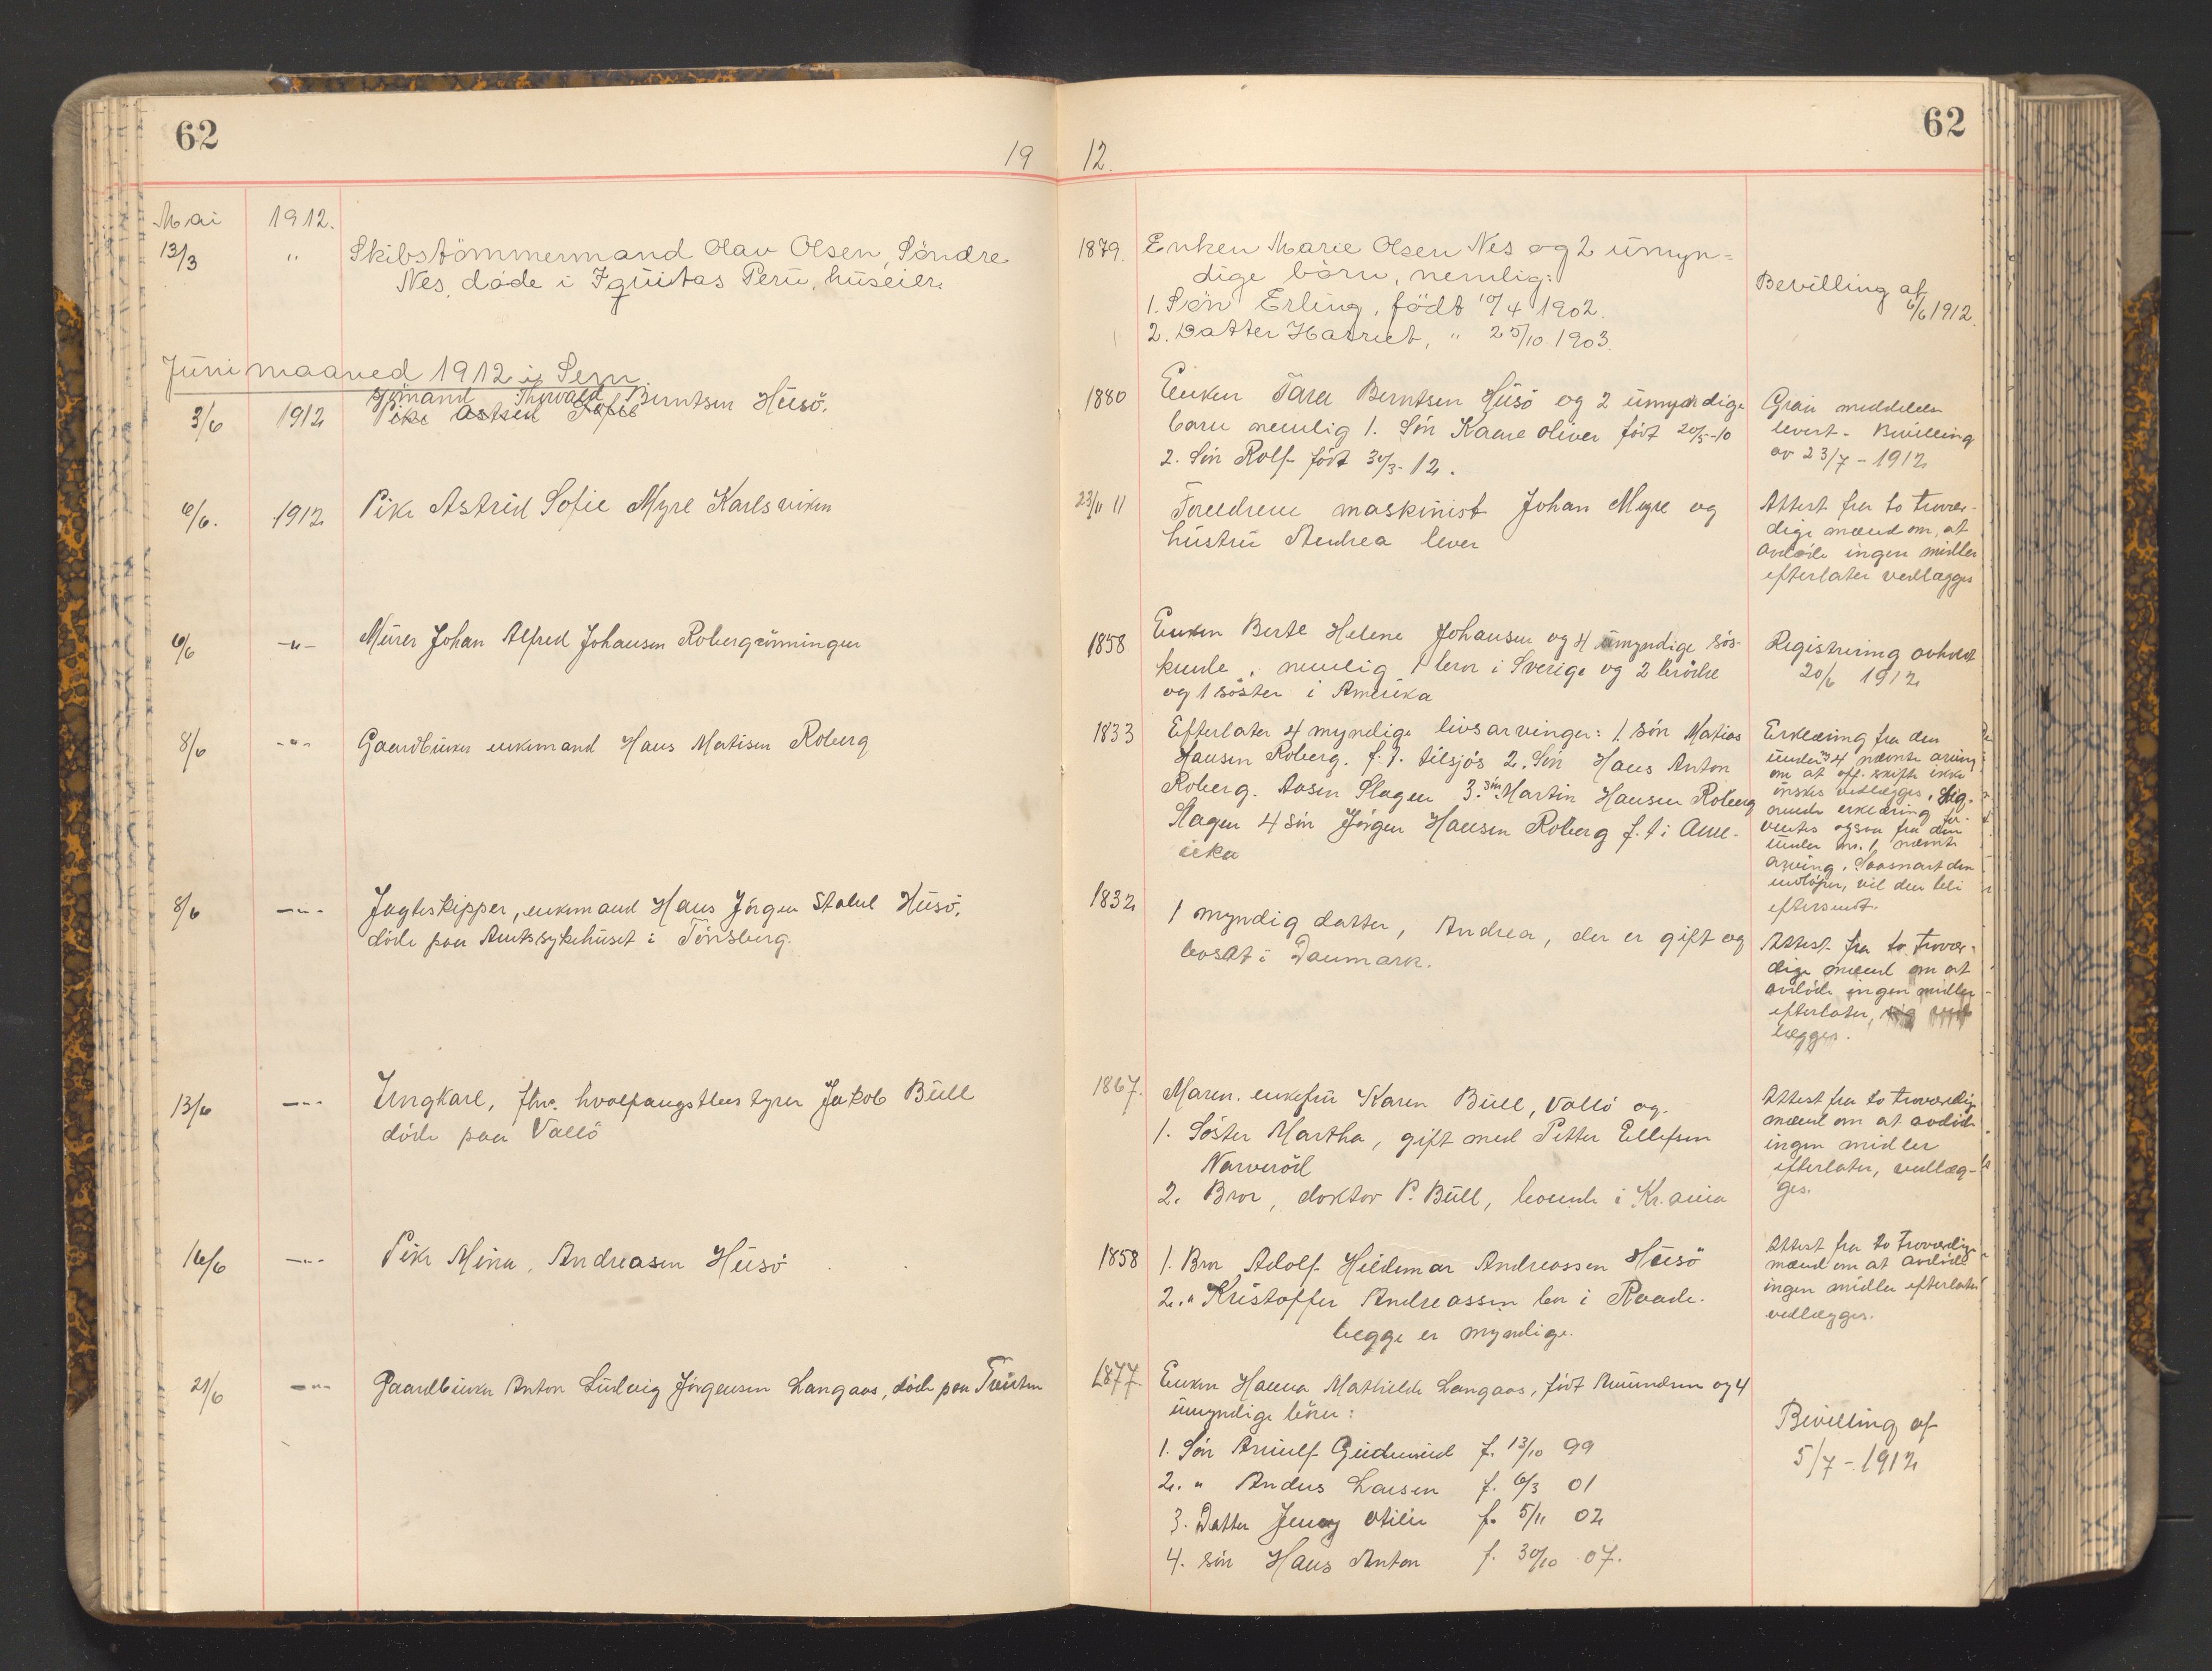 62
19
12.
62
Mai 1912.
13/3 " Skibstömmermand Olav Olsen, Söndre
Nes, döde i Iquitas Peru, huseier.
1879. Enken Marie Olsen Nes og 2 umyn=
dige börn, nemlig:
1. Sön Erling, född 10/4 1902.
2. Datter Harriet, " 25/10 1903.
Bevilling af
6/6 1912.
Juni maaned 1912 i Sem
Sjömand Thorvald
3/6 1912 Pike Astrid Sofie Berntsen Husö.
1880 Enken Tara Berntsen Husö og 2 umyndige
barn nemlig 1. Sön Kaare Oliver födt 20/5-10
2. Sön Rolf födt 30/3-12.
meddelelse
levert. Bevilling
av 23/7-1912
6/6. 1912 Pike Astrid Sofie Myre Karlsviken
23/11 11 Foreldrene maskinist Johan Myre og
hustru Andrea lever
Attest fra to trovær-
dige mænd om, at
avdöde ingen midler
efterlater vedlægges
6/6 -"- Murer Johan Alfred Johansen Robergrönningen
1858 Enken Berte Helene Johansen og 4 umyndige sös-
kende, nemlig 1 bror i Sverige og 2 brödre
og 1 söster i Amerika
Registrering avholdt
20/6 1912
8/6 -"- Gaardbruker enkemand Hans Matisen Roberg
1833 Efterlater 4 myndige livsarvinger: 1. sön Matias
Hansen Roberg. f. t. tilsjös 2. Sön Hans Anton
Roberg. Aasen Slagen 3. sön Martin Hansen Roberg
Slagen 4 sön Jörgen Hansen Roberg f. t i Ame-
rika
Erklæring fra den
under 4 nævnte arving
om at off. skifte ikke
önskes vedlægges,
erklæring
ventes ogsaa fra den
under nr. 1 nævnte
arving. Saasnart den
indlöper, vil den bli
eftersendt.
8/6 -"- Jagtskipper, enkemand Hans Jörgen Stabel Husö,
döde paa Amtssykehuset i Tönsberg.
1832 1 myndig datter, Andrea, der er gift og
bosat i Danmark.
Attest fra to trovær-
dige mænd om at
avdöde ingen midler
efterlater,
lægges.
13/6 -"- Ungkarl, fhv. hvalfangstbestyrer Jakob Bull
döde paa Vallö
1867. Moren. enkefru Karen Bull, Vallö og.
1. Söster Martha, gift med Petter Ellefsen
Narveröd
2. Bror, doktor P. Bull, boende i Kr.ania
Attest fra to troværdige
mænd om at avdöde
ingen midler
efterlater, vedlæg-
ges.
16/6 -"- Pike Mina, Andreasen Husö
1858 1. Bror Adolf Hildemar Andreassen Husö
2. " Kristoffer Andreassen bor i Raade.
begge er myndige.
Attest fra to troværdige
mænd om at avdöde
ingen midler efterlater
vedlægges.
21/6 -"- Gaardbruker Anton Ludvig Jörgensen Langaas, döde paa
1877. Enken Hanna Mathilde Langaas, födt Amundsen og 4
umyndige börn:
1. Sön Arnulf Gudmund f. 13/10 99
2. " Anders Larsen f. 6/3 01
3. Datter Jenny Otilie f. 5/11 02
4. sön Hans Anton f. 30/10 07.
Bevilling af
5/7-1912